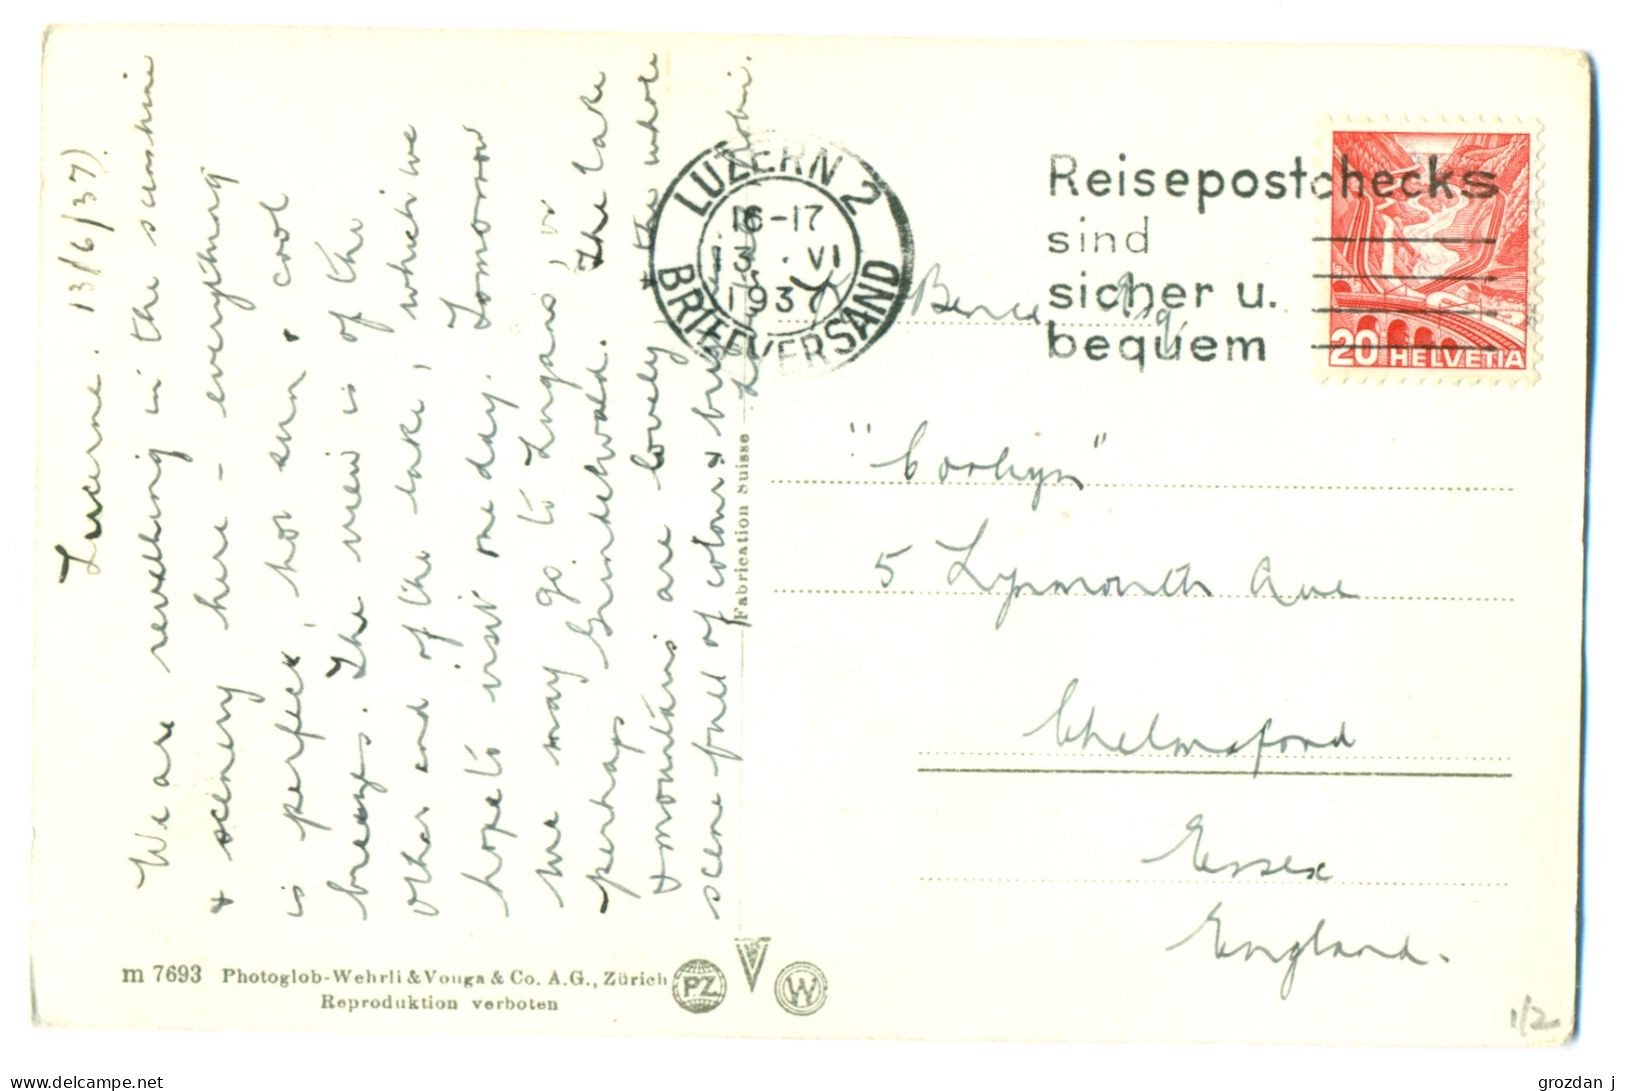 Lucerne. 13/6/37).
We are revelling in the sunshine
& scenery here - everything
is perfect, hot sun & cool
breezes. The view is of the
other end of the lake, which we
hope to visit one day. Tomorrow
we may go to Lugano, or
perhaps Grindelwald. The lake
& mountains are lovely & the whole
scene full of colour &
LUZERN 2
16-17
13.VI
1937
BRIEFVERSAND
Reisepostchecks
sind
sicher u.
bequem
20 HELVETIA
Esq.
"Corhyn"
5 Lynmouth Ave
Chelmsford
Essex
England.
Fabrication Suisse
m 7693 Photoglob-Wehrli & Vouga & Co. A.G., Zürich
Reproduktion verboten
PZ
V
W
1/2
www.delcampe.net
grozdan j